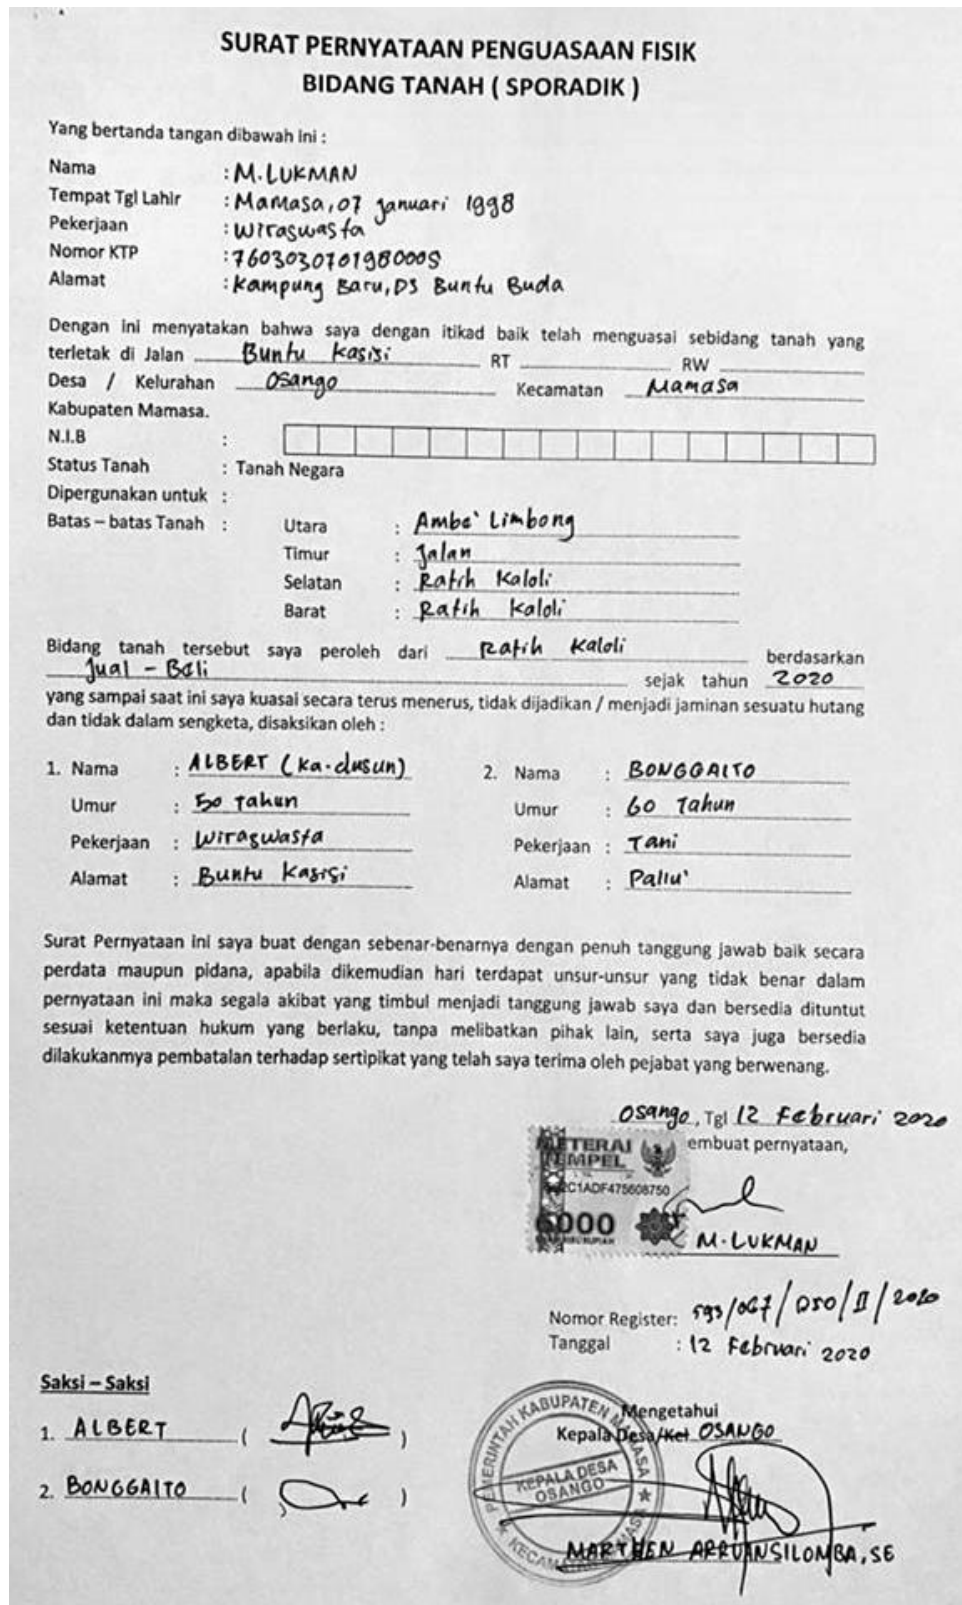 SURAT PERNYATAAN PENGUASAAN FISIK
BIDANG TANAH ( SPORADIK )
Yang bertanda tangan dibawah ini :
Nama : M. LUKMAN
Tempat Tgl Lahir : Mamasa, 07 Januari 1998
Pekerjaan : Wiraswasta
Nomor KTP : 7603030701980005
Alamat : Kampung Baru, DS Buntu Buda
Dengan ini menyatakan bahwa saya dengan itikad baik telah menguasai sebidang tanah yang
terletak di Jalan Buntu Kasisi RT RW
Desa / Kelurahan Osango Kecamatan Mamasa
Kabupaten Mamasa.
N.I.B :
Status Tanah : Tanah Negara
Dipergunakan untuk :
Batas – batas Tanah : Utara : Ambe' Limbong
Timur : Jalan
Selatan : Ratih Kaloli
Barat : Ratih Kaloli
Bidang tanah tersebut saya peroleh dari Ratih Kaloli berdasarkan
Jual - Beli sejak tahun 2020
yang sampai saat ini saya kuasai secara terus menerus, tidak dijadikan / menjadi jaminan sesuatu hutang
dan tidak dalam sengketa, disaksikan oleh :
1. Nama : ALBERT (Ka.dusun) 2. Nama : BONGGAITO
Umur : 50 Tahun Umur : 60 Tahun
Pekerjaan : Wiraswasta Pekerjaan : Tani
Alamat : Buntu Kasisi Alamat : Pallu'
Surat Pernyataan ini saya buat dengan sebenar-benarnya dengan penuh tanggung jawab baik secara
perdata maupun pidana, apabila dikemudian hari terdapat unsur-unsur yang tidak benar dalam
pernyataan ini maka segala akibat yang timbul menjadi tanggung jawab saya dan bersedia dituntut
sesuai ketentuan hukum yang berlaku, tanpa melibatkan pihak lain, serta saya juga bersedia
dilakukanmya pembatalan terhadap sertipikat yang telah saya terima oleh pejabat yang berwenang.
Osango, Tgl 12 Februari 2020
embuat pernyataan,
METERAI
TEMPEL
C1ADF475608750
6000
M. LUKMAN
Nomor Register: 593/067/DSO/II/2020
Tanggal : 12 Februari 2020
Saksi – Saksi
1. ALBERT ( )
2. BONGGAITO ( )
Mengetahui
Kepala Desa/Kel OSANGO
PEMERINTAH KABUPATEN MAMASA
KEPALA DESA
OSANGO
KECAMATAN MAMASA
MARTHEN ARRUANSILOMBA, SE